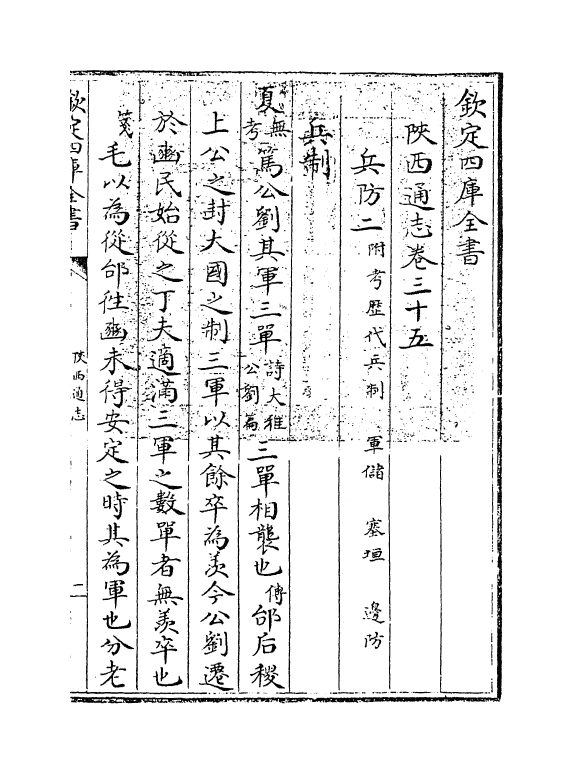 欽定四庫全書
陜西通志卷三十五
兵防二附考歷代兵制　軍儲　塞垣　邊防
兵制
夏無考篤公劉其軍三單詩大雅公劉篇三單相襲也傳邰后稷
上公之封大國之制三軍以其餘卒為羨今公劉遷
於豳民始從之丁夫適滿三軍之數單者無羨卒也
箋毛以為從邰往豳未得安定之時其為軍也分老
欽定四庫全書
陜西通志